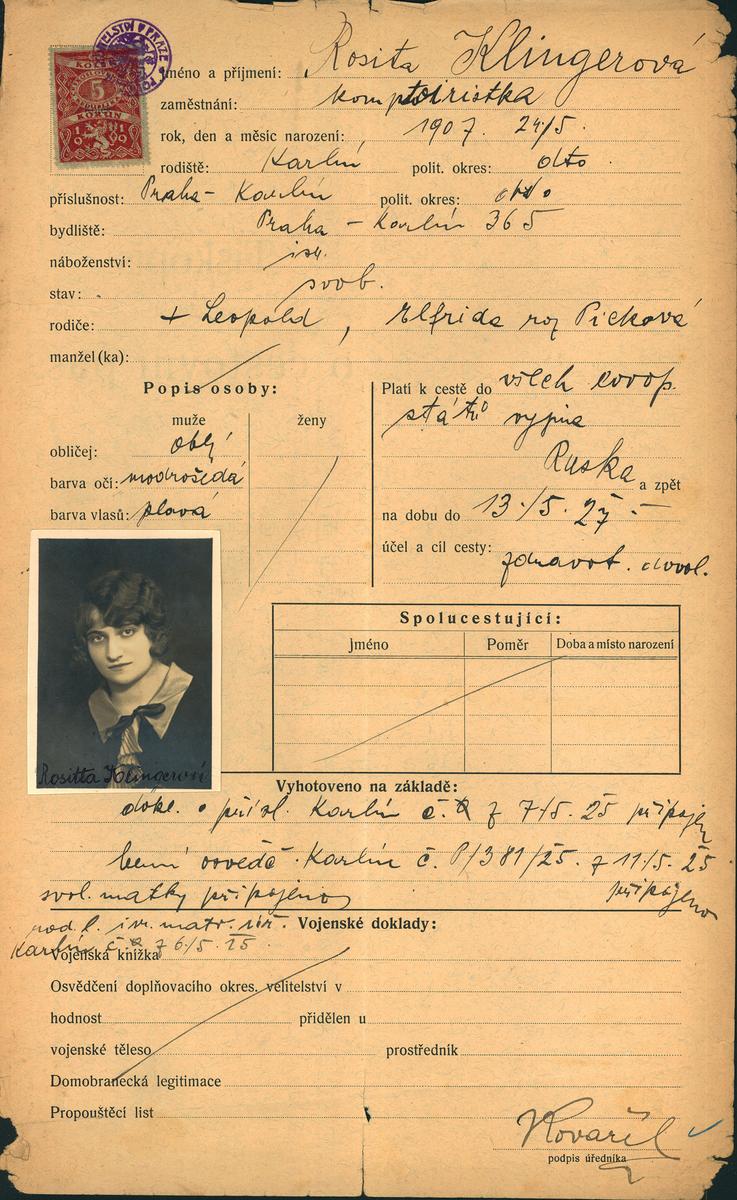 Jméno a příjmení: Rosita Klingerová
zaměstnání: komptoiristka
rok, den a měsíc narození: 1907. 24/5.
rodiště: Karlín polit. okres: dtto
příslušnost: Praha - Karlín polit. okres: dtto
bydliště: Praha - Karlín 365
náboženství: isr.
stav: svob.
rodiče: + Leopold, Elfrida roz Picková
manžel(ka):
Popis osoby:
muže ženy
obličej: oblý
barva očí: modrošedá
barva vlasů: plavá
Platí k cestě do všech evrop.
států vyjma
Ruska a zpět
na dobu do 13./5. 27
účel a cíl cesty: zdravot. dovol.
Rositta Klingerová
Spolucestující:
Jméno Poměr Doba a místo narození
Vyhotoveno na základě:
dokl. o přísl. Karlín č. z 7/5. 25 připojen
berní osvědč. Karlín č. P/381/25. z 11/5. 25
svol. matky připojeno připojeno
rod. l. isr. matr. Vojenské doklady:
Karlín č. z 6/5. 25.
Vojenská knížka
Osvědčení doplňovacího okres. velitelství v
hodnost přidělen u
vojenské těleso prostředník
Domobranecká legitimace
Propouštěcí list
Kovařík
podpis úředníka
KORUN
5
KORUN
1919